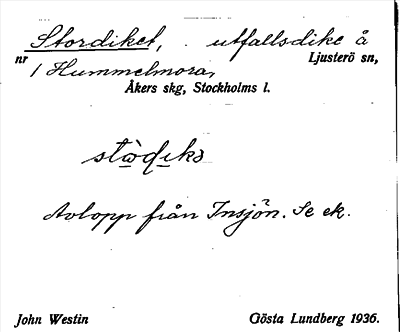 Stordiket, utfallsdike å
nr 1 Hummelmora, Ljusterö sn,
Åkers skg, Stockholms l.
Avlopp från Insjön. Se ek.
John Westin Gösta Lundberg 1936.